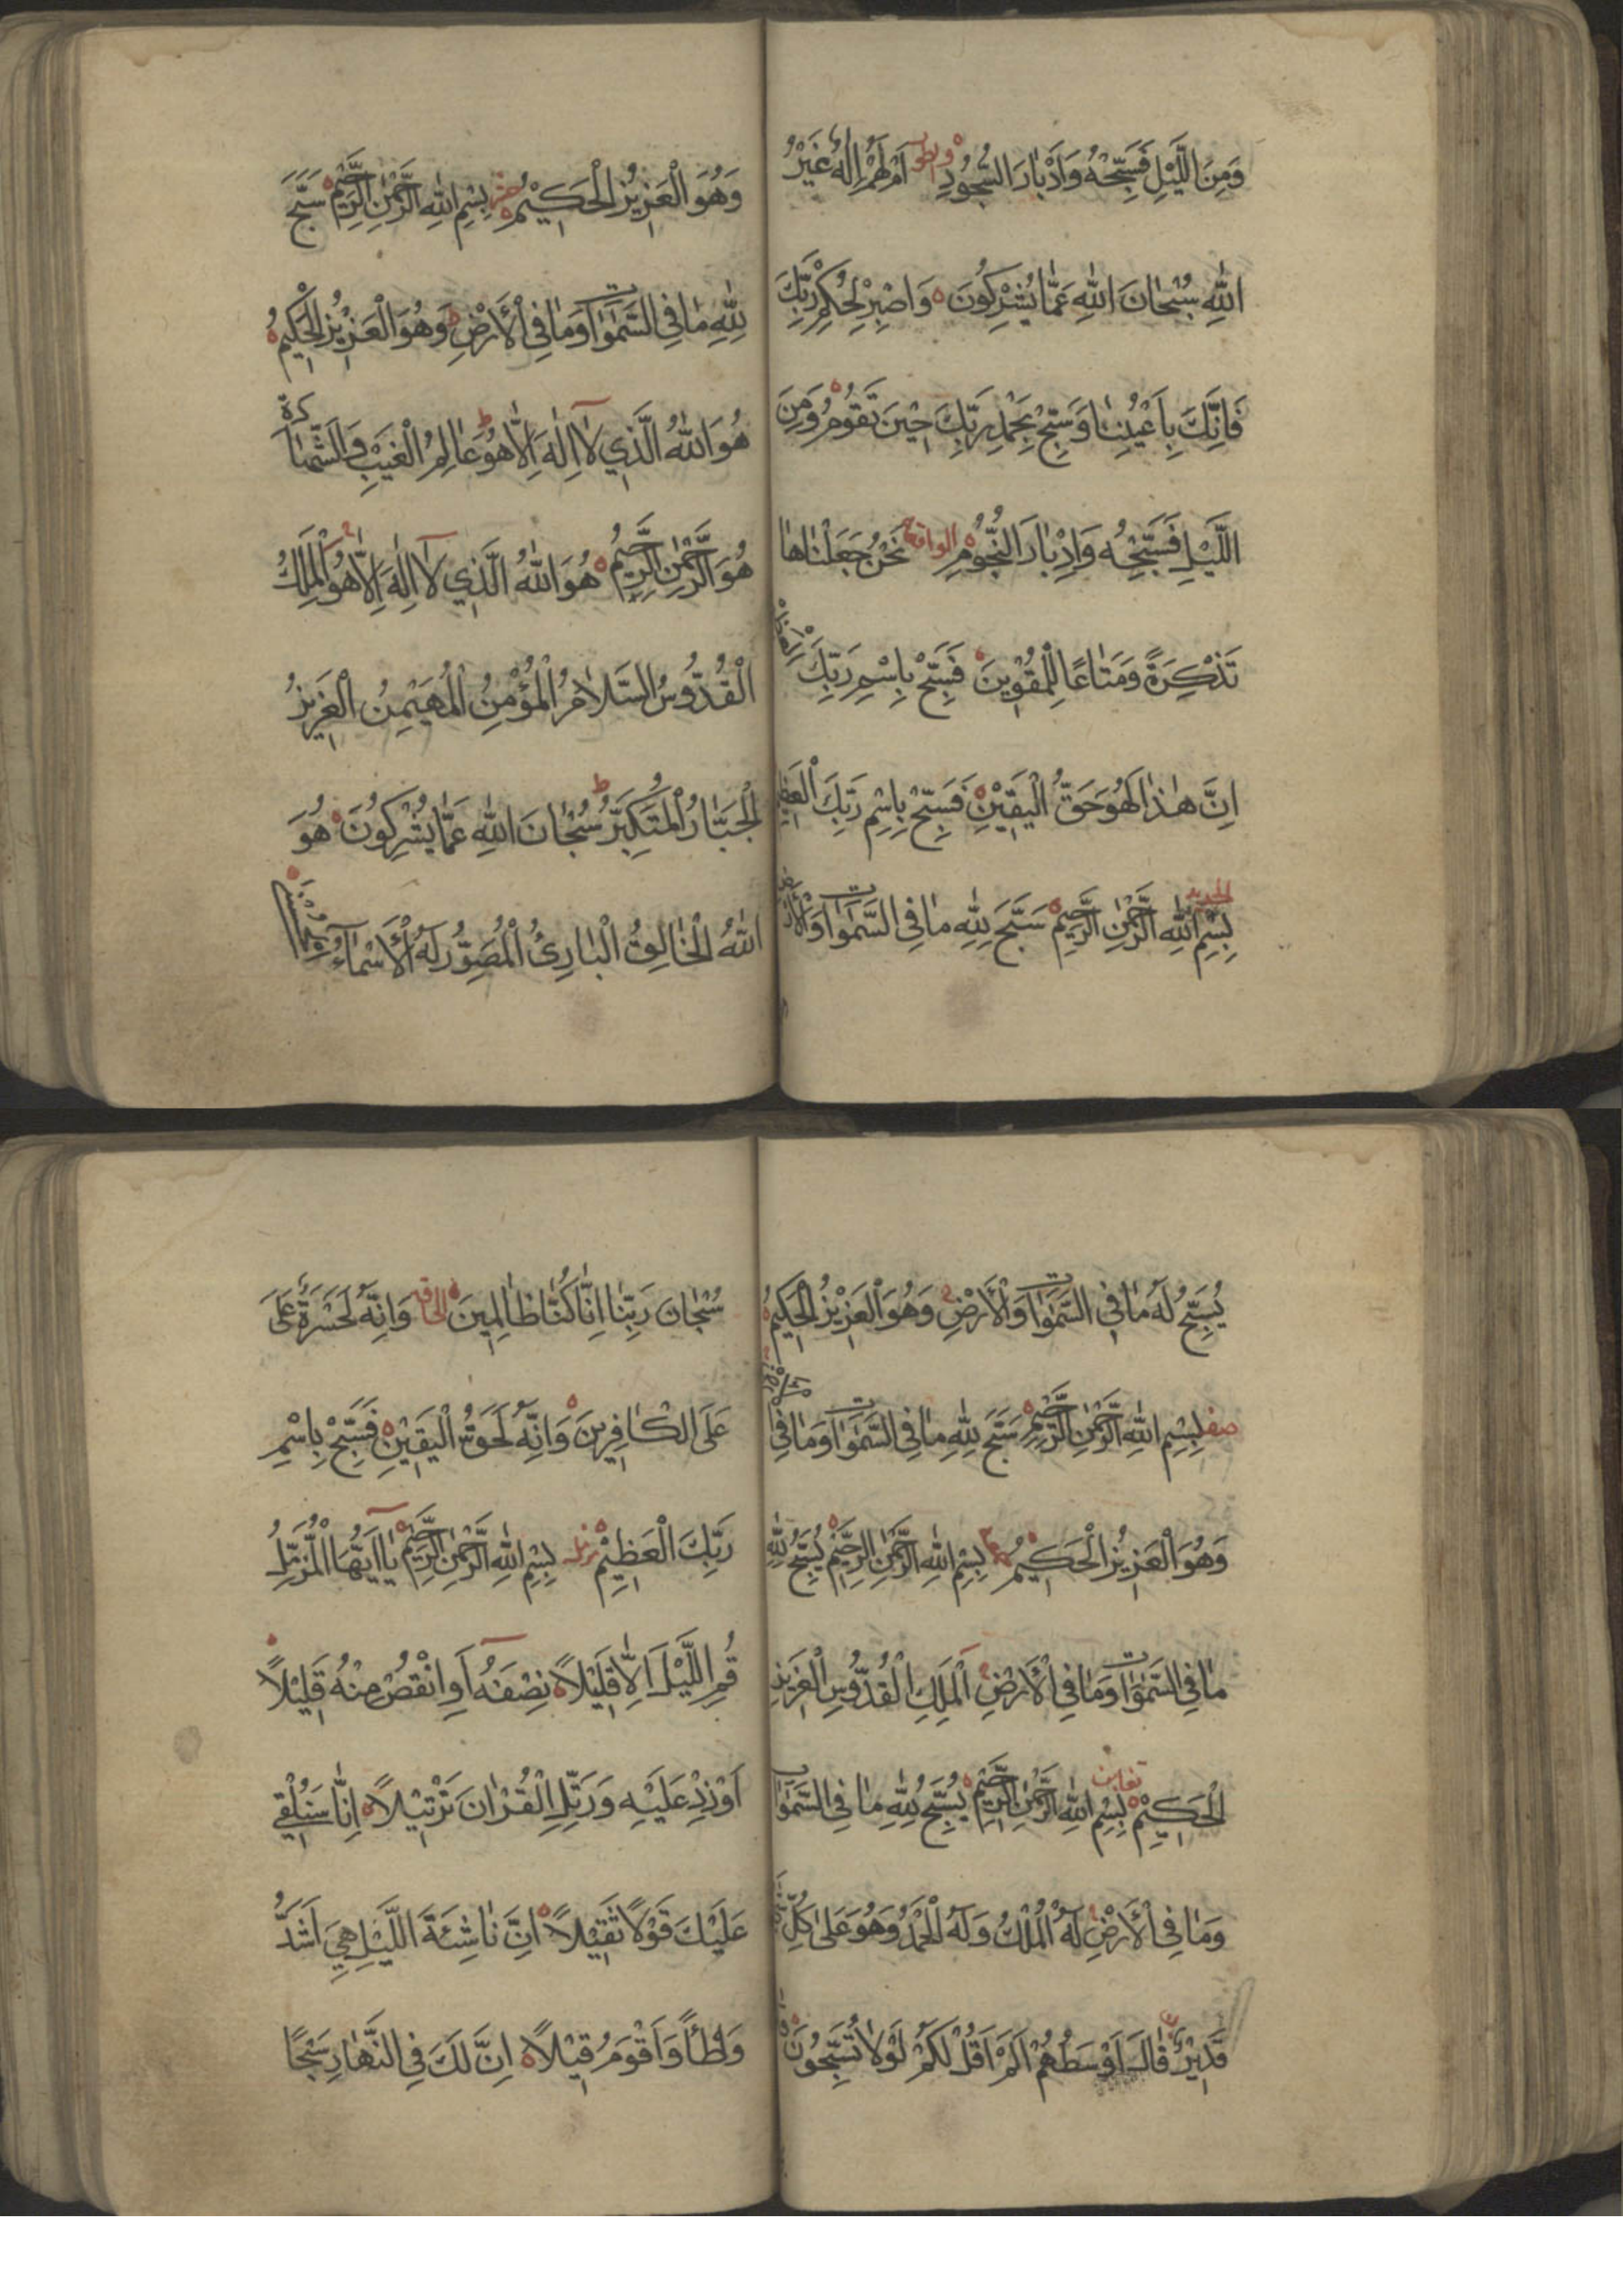 وَمِنَ اللَّيْلِ فَسَبِّحْهُ وَاَدْبَارَ السُّجُودِ والطور اَمْ لَهُمْ اِلٰهٌ غَيْرُ
اللّٰهِ سُبْحَانَ اللّٰهِ عَمَّا يُشْرِكُونَ وَاصْبِرْ لِحُكْمِ رَبِّكَ
فَاِنَّكَ بِاَعْيُنِنَا وَسَبِّحْ بِحَمْدِ رَبِّكَ حِينَ تَقُومُ وَمِنَ
اللَّيْلِ فَسَبِّحْهُ وَاِدْبَارَ النُّجُومِ الواقعة نَحْنُ جَعَلْنَاهَا
تَذْكِرَةً وَمَتَاعًا لِلْمُقْوِينَ فَسَبِّحْ بِاسْمِ رَبِّكَ
اِنَّ هٰذَا لَهُوَ حَقُّ الْيَقِينِ فَسَبِّحْ بِاسْمِ رَبِّكَ الْعَظِيمِ
الحديد
بِسْمِ اللّٰهِ الرَّحْمٰنِ الرَّحِيمِ سَبَّحَ لِلّٰهِ مَا فِي السَّمٰوَاتِ وَالْاَرْضِ
وَهُوَ الْعَزِيزُ الْحَكِيمُ بِسْمِ اللّٰهِ الرَّحْمٰنِ الرَّحِيمِ سَبَّحَ
لِلّٰهِ مَا فِي السَّمٰوَاتِ وَمَا فِي الْاَرْضِ وَهُوَ الْعَزِيزُ الْحَكِيمُ
هُوَ اللّٰهُ الَّذِي لَا اِلٰهَ اِلَّا هُوَ عَالِمُ الْغَيْبِ وَالشَّهَادَةِ
هُوَ الرَّحْمٰنُ الرَّحِيمُ هُوَ اللّٰهُ الَّذِي لَا اِلٰهَ اِلَّا هُوَ اَلْمَلِكُ
الْقُدُّوسُ السَّلَامُ الْمُؤْمِنُ الْمُهَيْمِنُ الْعَزِيزُ
الْجَبَّارُ الْمُتَكَبِّرُ سُبْحَانَ اللّٰهِ عَمَّا يُشْرِكُونَ هُوَ
اللّٰهُ الْخَالِقُ الْبَارِئُ الْمُصَوِّرُ لَهُ الْاَسْمَاءُ الْحُسْنٰى
يُسَبِّحُ لَهُ مَا فِي السَّمٰوَاتِ وَالْاَرْضِ وَهُوَ الْعَزِيزُ الْحَكِيمُ
صف بِسْمِ اللّٰهِ الرَّحْمٰنِ الرَّحِيمِ سَبَّحَ لِلّٰهِ مَا فِي السَّمٰوَاتِ وَمَا فِي الْاَرْضِ
وَهُوَ الْعَزِيزُ الْحَكِيمُ بِسْمِ اللّٰهِ الرَّحْمٰنِ الرَّحِيمِ يُسَبِّحُ لِلّٰهِ
مَا فِي السَّمٰوَاتِ وَمَا فِي الْاَرْضِ اَلْمَلِكِ الْقُدُّوسِ الْعَزِيزِ
الْحَكِيمِ تغابن بِسْمِ اللّٰهِ الرَّحْمٰنِ الرَّحِيمِ يُسَبِّحُ لِلّٰهِ مَا فِي السَّمٰوَاتِ
وَمَا فِي الْاَرْضِ لَهُ الْمُلْكُ وَلَهُ الْحَمْدُ وَهُوَ عَلٰى كُلِّ شَيْءٍ
قَدِيرٌ ن قَالَ اَوْسَطُهُمْ اَلَمْ اَقُلْ لَكُمْ لَوْلَا تُسَبِّحُونَ
سُبْحَانَ رَبِّنَا اِنَّا كُنَّا ظَالِمِينَ الحاقة وَاِنَّهُ لَحَسْرَةٌ عَلَى
عَلَى الْكَافِرِينَ وَاِنَّهُ لَحَقُّ الْيَقِينِ فَسَبِّحْ بِاسْمِ
رَبِّكَ الْعَظِيمِ مزمل بِسْمِ اللّٰهِ الرَّحْمٰنِ الرَّحِيمِ يَا اَيُّهَا الْمُزَّمِّلُ
قُمِ اللَّيْلَ اِلَّا قَلِيلًا نِصْفَهُ اَوِ انْقُصْ مِنْهُ قَلِيلًا
اَوْ زِدْ عَلَيْهِ وَرَتِّلِ الْقُرْاٰنَ تَرْتِيلًا اِنَّا سَنُلْقِي
عَلَيْكَ قَوْلًا ثَقِيلًا اِنَّ نَاشِئَةَ اللَّيْلِ هِيَ اَشَدُّ
وَطْأً وَاَقْوَمُ قِيلًا اِنَّ لَكَ فِي النَّهَارِ سَبْحًا